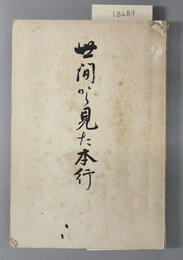 18489
世間から見た本行